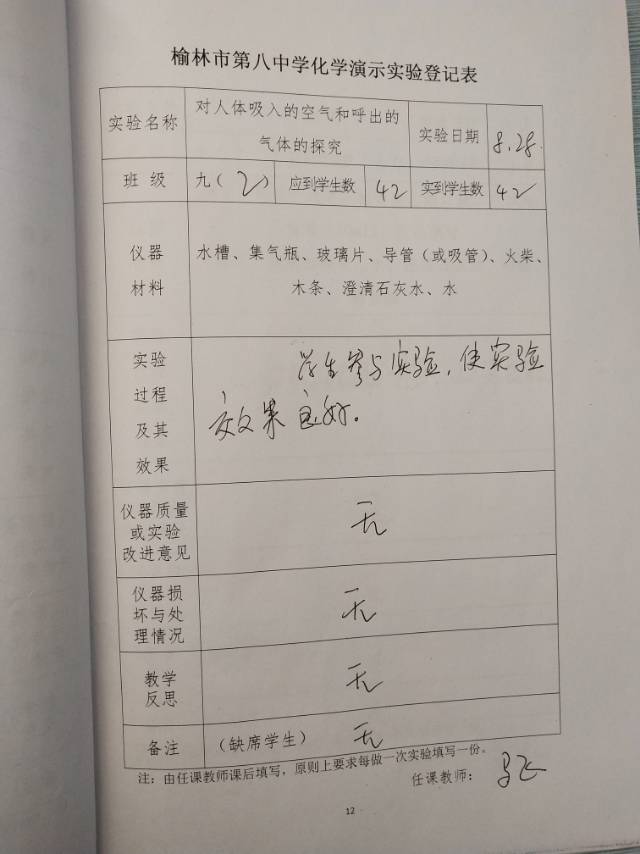 榆林市第八中学化学演示实验登记表
实验名称
对人体吸入的空气和呼出的
气体的探究
实验日期
8.28.
班 级
九(2)
应到学生数
42
实到学生数
42
仪器
材料
水槽、集气瓶、玻璃片、导管(或吸管)、火柴、
木条、澄清石灰水、水
实验
过程
及其
效果
学生参与实验,使实验
效果良好。
仪器质量
或实验
改进意见
无
仪器损
坏与处
理情况
无
教学
反思
无
备注
(缺席学生)
无
注:由任课教师课后填写,原则上要求每做一次实验填写一份。
任课教师:
12